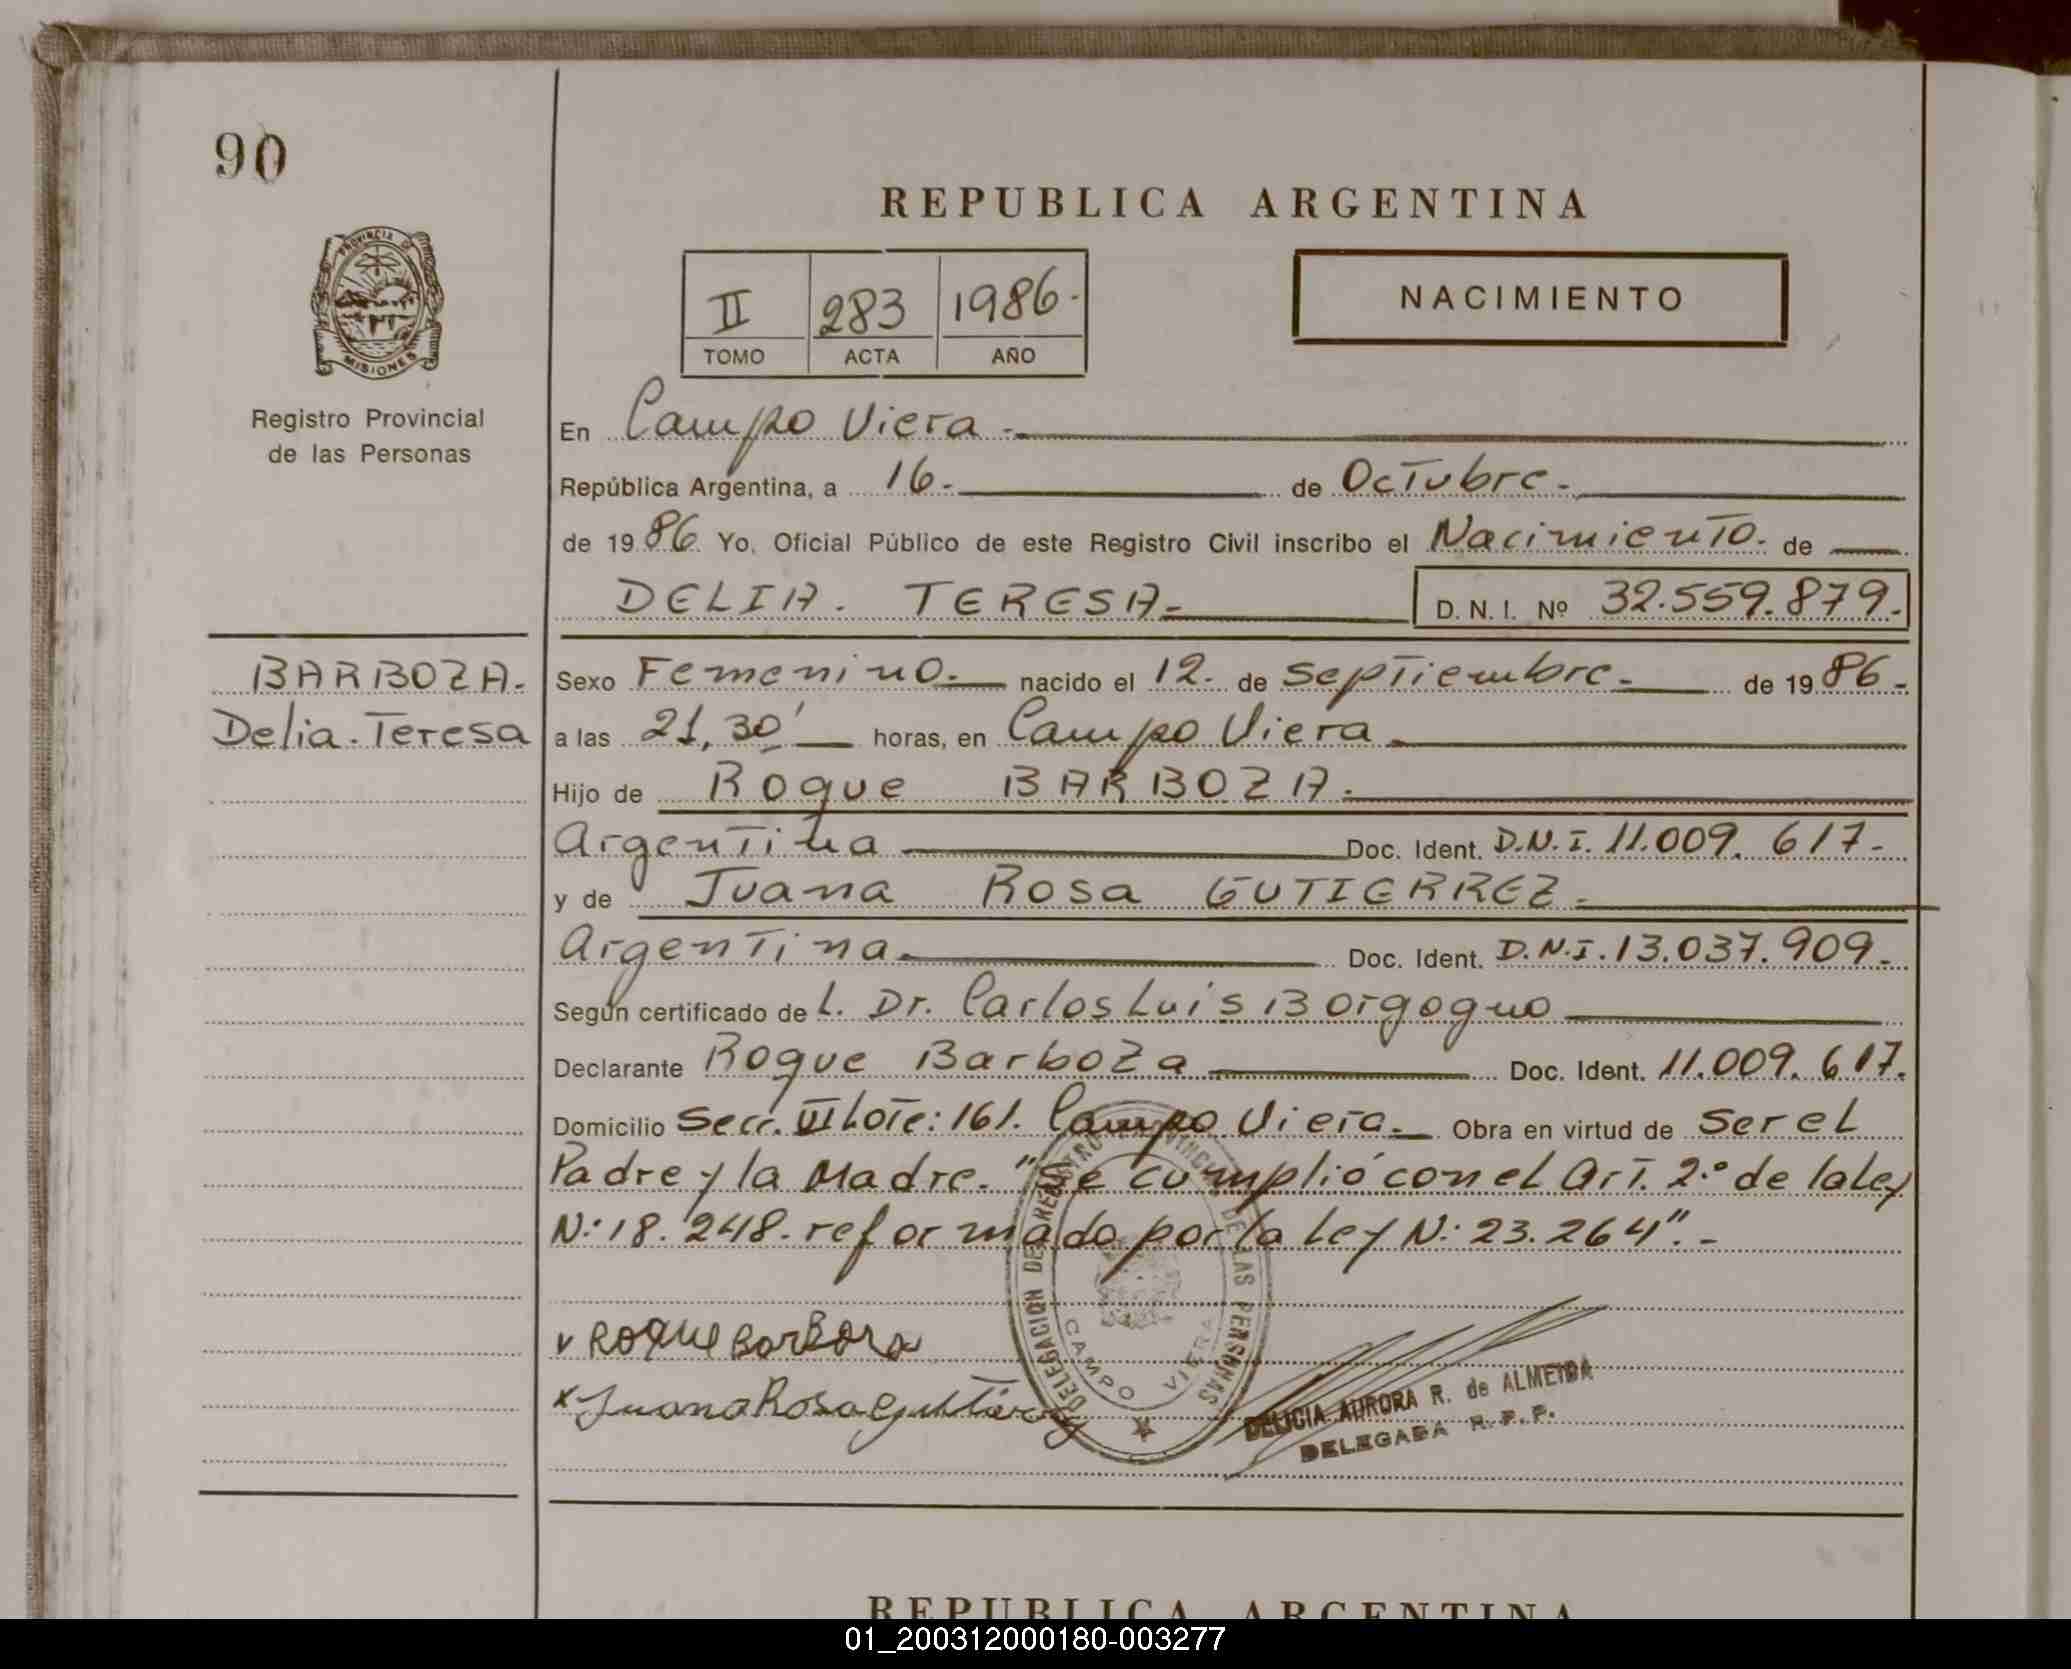 90
REPUBLICA ARGENTINA
PROVINCIA DE
MISIONES
II 283 1986.
TOMO ACTA AÑO
NACIMIENTO
Registro Provincial
de las Personas
En Campo Viera.-
República Argentina, a 16.- de Octubre.-
de 1986. Yo, Oficial Público de este Registro Civil inscribo el Nacimiento. de
DELIA. TERESA.- D. N. I. Nº 32.559.879.-
BARBOZA.
Delia. Teresa
Sexo Femenino.- nacido el 12. de Septiembre.- de 1986.-
a las 21,30' horas, en Campo Viera.-
Hijo de Roque BARBOZA.-
Argentina Doc. Ident. D.N.I. 11.009.617.-
y de Juana Rosa GUTIERREZ.-
Argentina.- Doc. Ident. D.N.I. 13.037.909.-
Según certificado de L. Dr. Carlos Luis Borgogno
Declarante Roque Barboza Doc. Ident. 11.009.617.
Domicilio Secc. VI Lote: 161. Campo Viera.- Obra en virtud de ser el
Padre y la Madre. "Se cumplió con el Art. 2.º de la ley
N: 18.248. reformado por la ley N: 23.264".-
DELEGACION DEL REGISTRO PROVINCIAL DE LAS PERSONAS
CAMPO VIERA
Roque Barbosa
x Juana Rosa Gutierrez
DELICIA AURORA R. de ALMEIDA
DELEGADA R. P. P.
REPUBLICA ARGENTINA
01_200312000180-003277